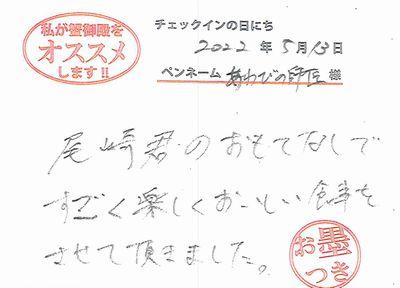 私が蟹御殿を
オススメ
します!!
チェックインの日にち
2022年5月13日
ペンネーム あわびの師匠 様
尾崎君のおもてなしで
すごく楽しくおいしい食事を
させて頂きました。
お墨
つき